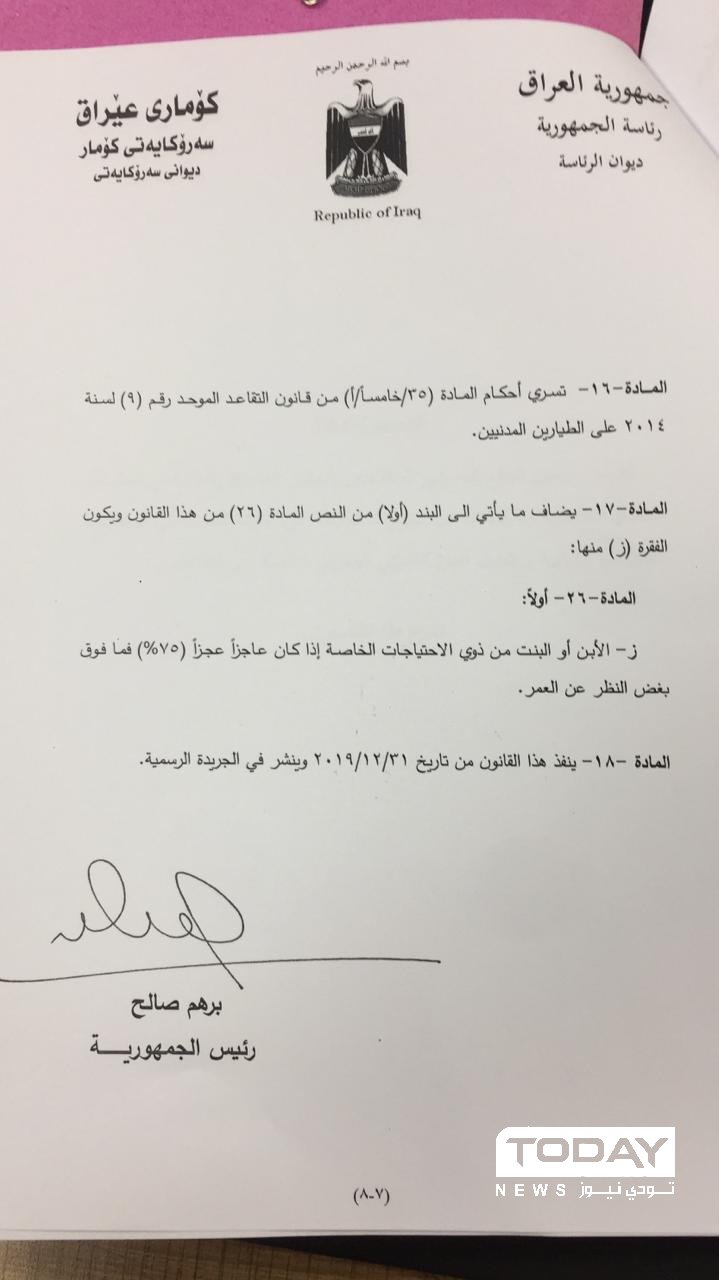 بسم الله الرحمن الرحيم
جمهورية العراق
رئاسة الجمهورية
ديوان الرئاسة
كۆماری عێراق
سەرۆكایەتی كۆمار
دیوانی سەرۆكایەتی
Republic of Iraq
المادة-١٦- تسري أحكام المادة (٣٥/خامساً/أ) من قانون التقاعد الموحد رقم (٩) لسنة
٢٠١٤ على الطيارين المدنيين.
المادة-١٧- يضاف ما يأتي الى البند (أولا) من النص المادة (٢٦) من هذا القانون ويكون
الفقرة (ز) منها:
المادة-٢٦- أولاً:
ز- الأبن أو البنت من ذوي الاحتياجات الخاصة إذا كان عاجزاً عجزاً (٧٥%) فما فوق
بغض النظر عن العمر.
المادة -١٨- ينفذ هذا القانون من تاريخ ٢٠١٩/١٢/٣١ وينشر في الجريدة الرسمية.
برهم صالح
رئيس الجمهوريـــة
TODAY
NEWS تودي نيوز
(٧-٨)